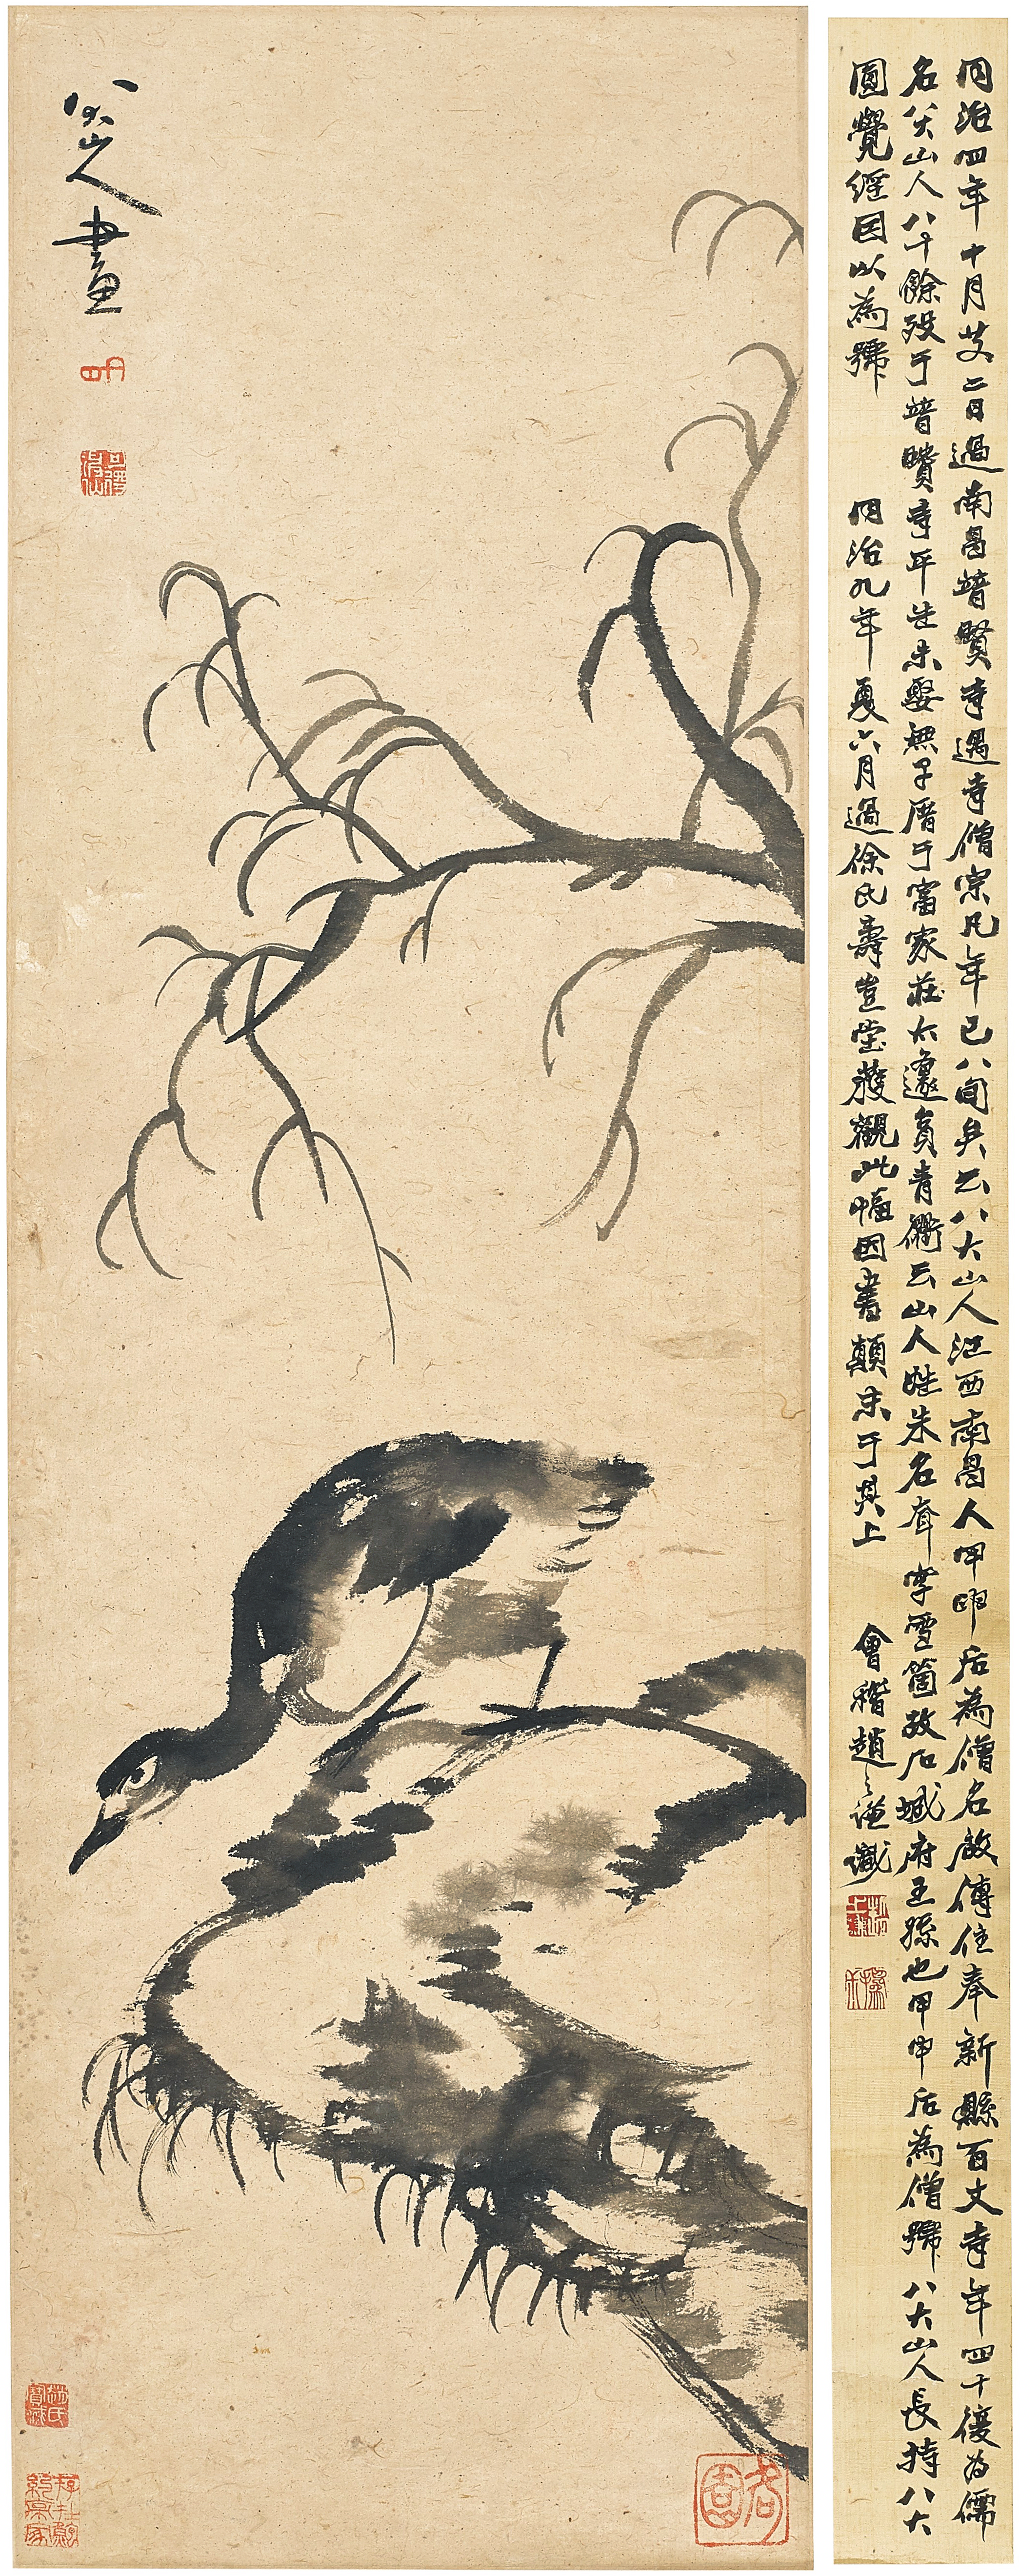 八大山人畫
可得神仙
同治四年十月廿二日過南昌普賢寺遇寺僧宗凡年已八旬矣云八大山人江西南昌人甲申后為僧名啟傳住奉新縣百丈寺年四十復為儒
名八大山人八十餘歿于普賢寺平生未娶無子厝于富家莊太遽貢青衢云山人姓朱名耷字雪箇故石城府王孫也甲申后為僧號八大山人長持八大
圓覺經因以為號
同治九年夏六月過徐氏壽豈堂獲觀此幅因書顛末于其上
會稽趙之謙識